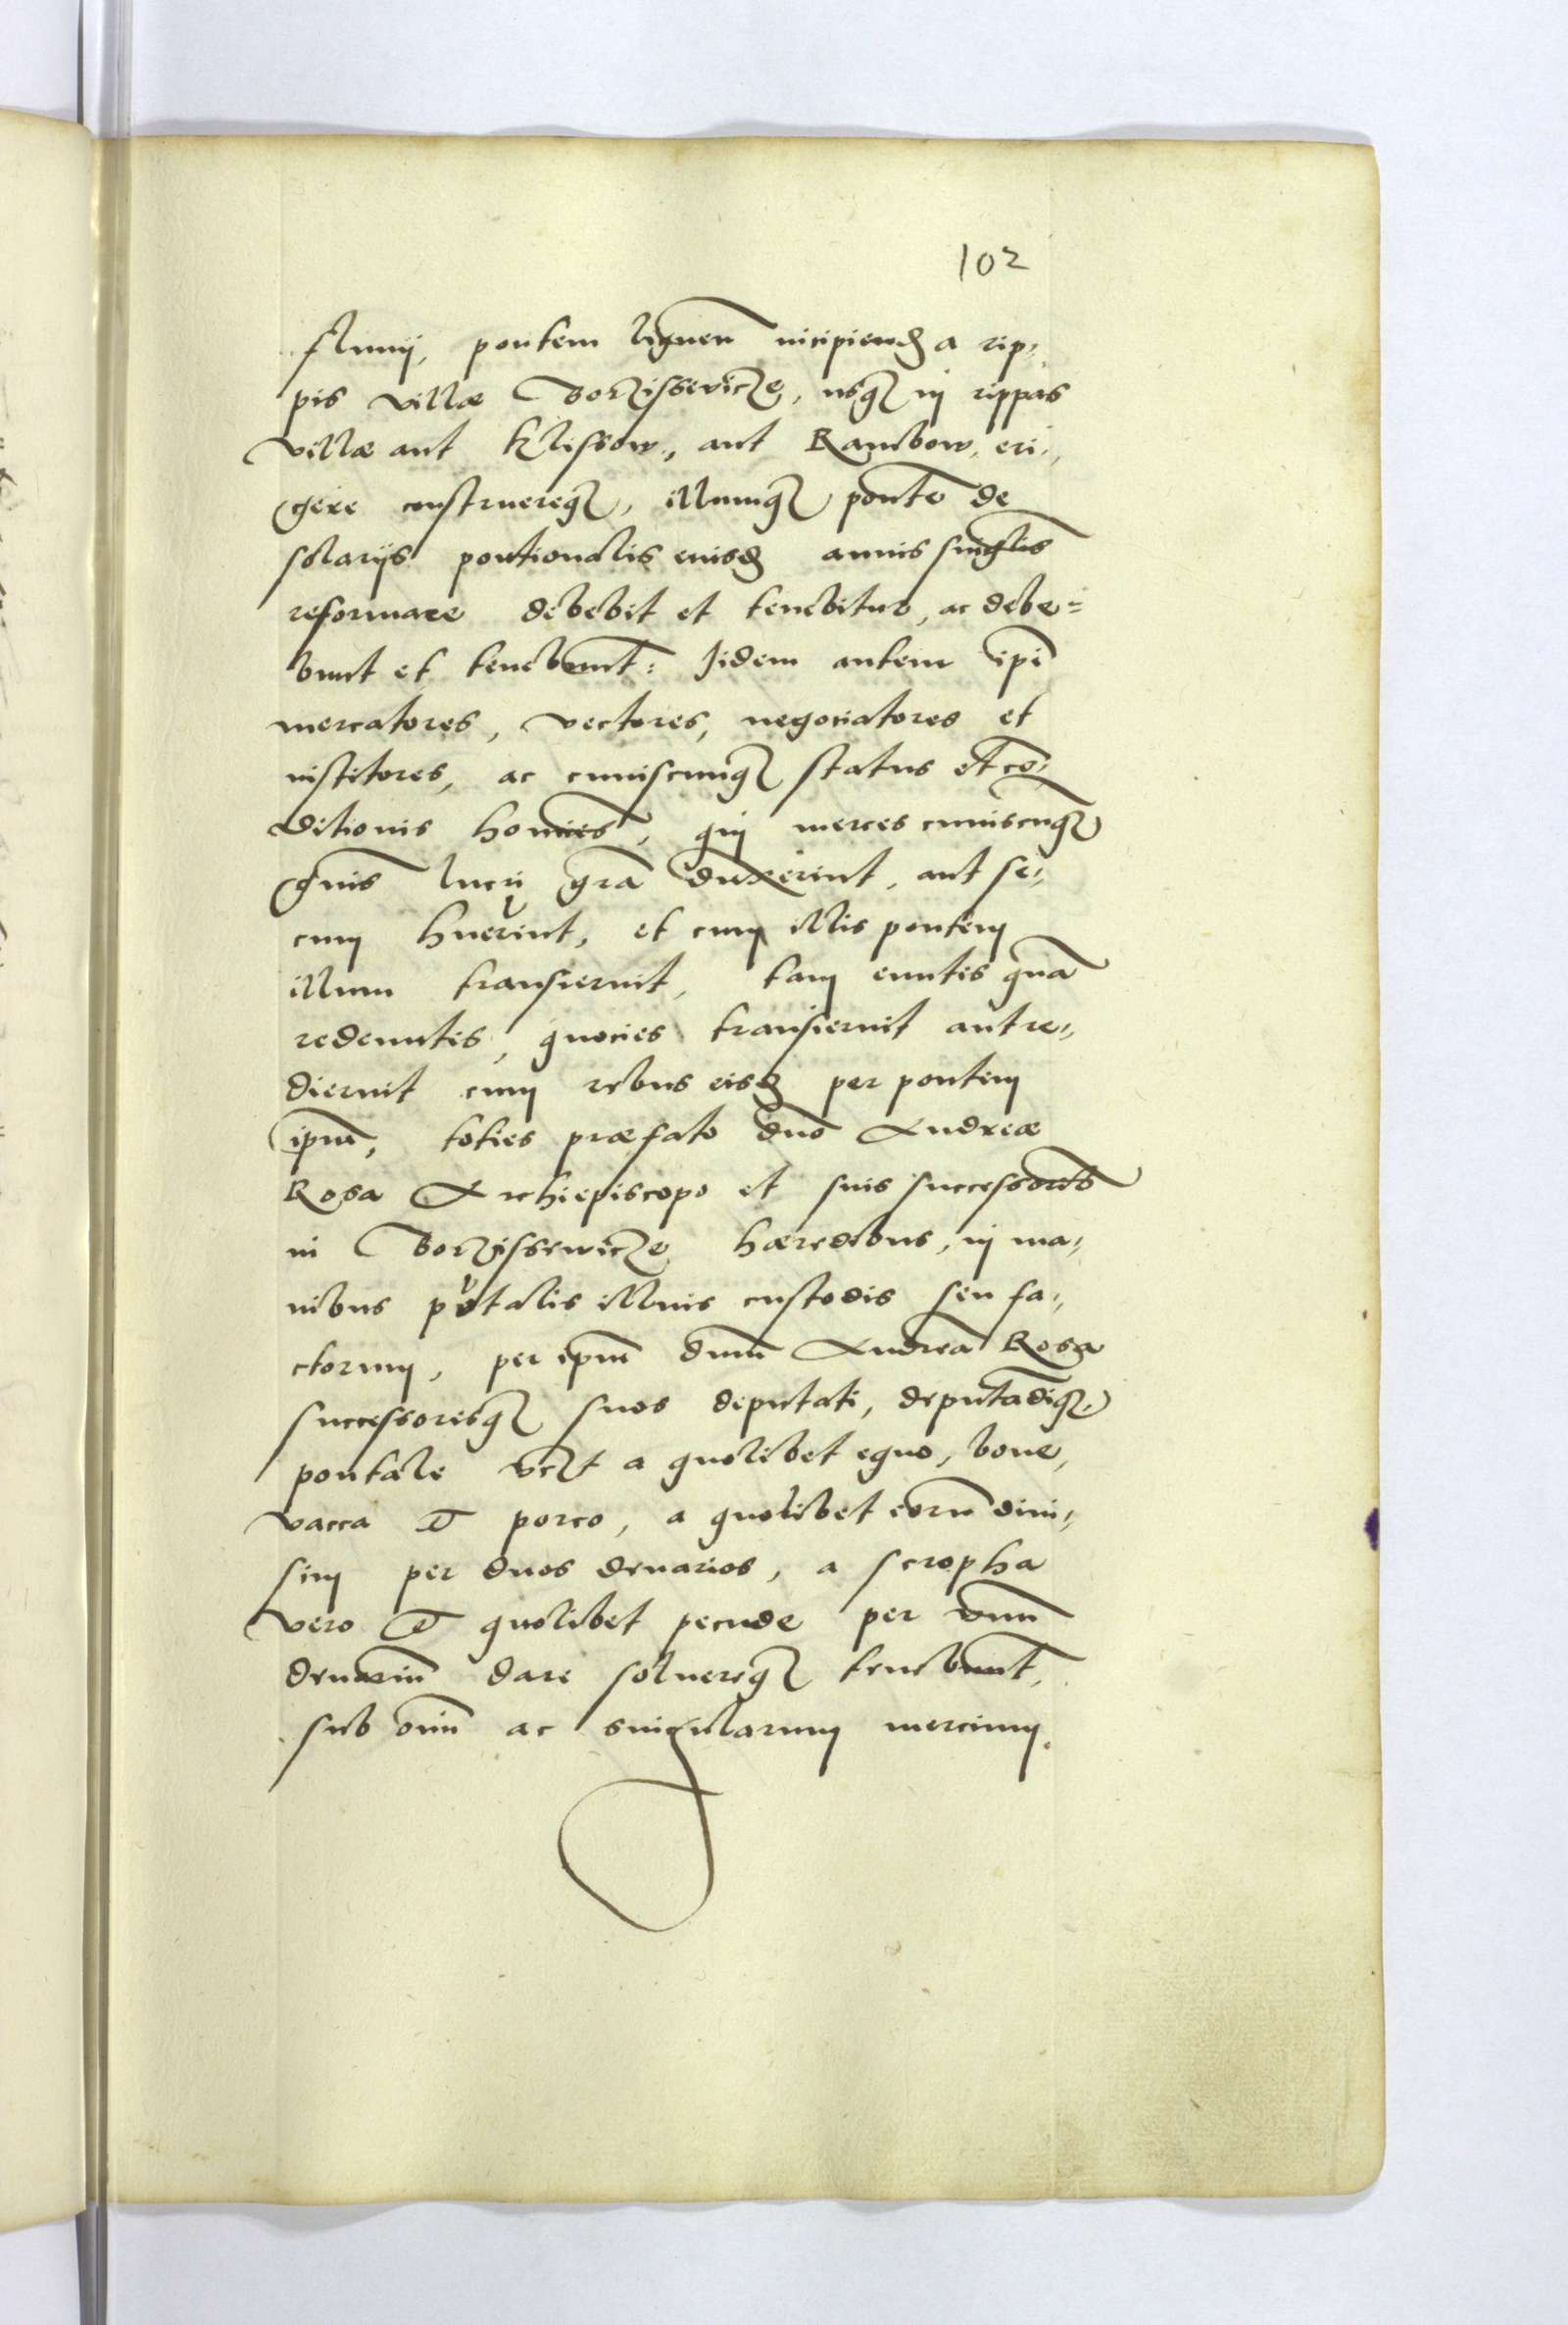 102
fluuij, pontem ligneū incipiendꝫ a rip,
pis villæ Borzissevicze, usqꝫ in rippas
villæ aut Klissow, aut Rambow, eri,
gere construereqꝫ, illumqꝫ pontē de
solarijs pontionalis eiusdꝫ annis singlis
reformare debebit et tenebitur, ac debe=
bunt et tenebunt: Iidem autem ipi
mercatores, vectores, negociatores et
institores, ac cuiuscunqꝫ status et cō,
ditionis homies, qui merces cuiuscūqꝫ
gnis lucri grā duxerint, aut se,
cum huerint, et cum illis pontem
illum transierint, tam euntes quā
redeuntes, quocies transierint aut re,
dierint cum rebus eisdꝫ per pontem
ipm, toties præfato dno Andreæ
Rosa Archiepiscopo et suis successorib
in Borzissewicze hæredibus, in ma,
nibus pōtalis illius custodis seu fa,
ctorum, per ipm dnm Andreā Rosa
successoresqꝫ suos deputati, deputādiqꝫ
pontale vꝫt a quolibet equo, boue,
vacca et porco, a quolibet eorū diui,
sim per duos denarios, a scropha
vero et quolibet pecude per vnū
denariū dare soluereqꝫ tenebunt,
sub oīm ac singularum mercium